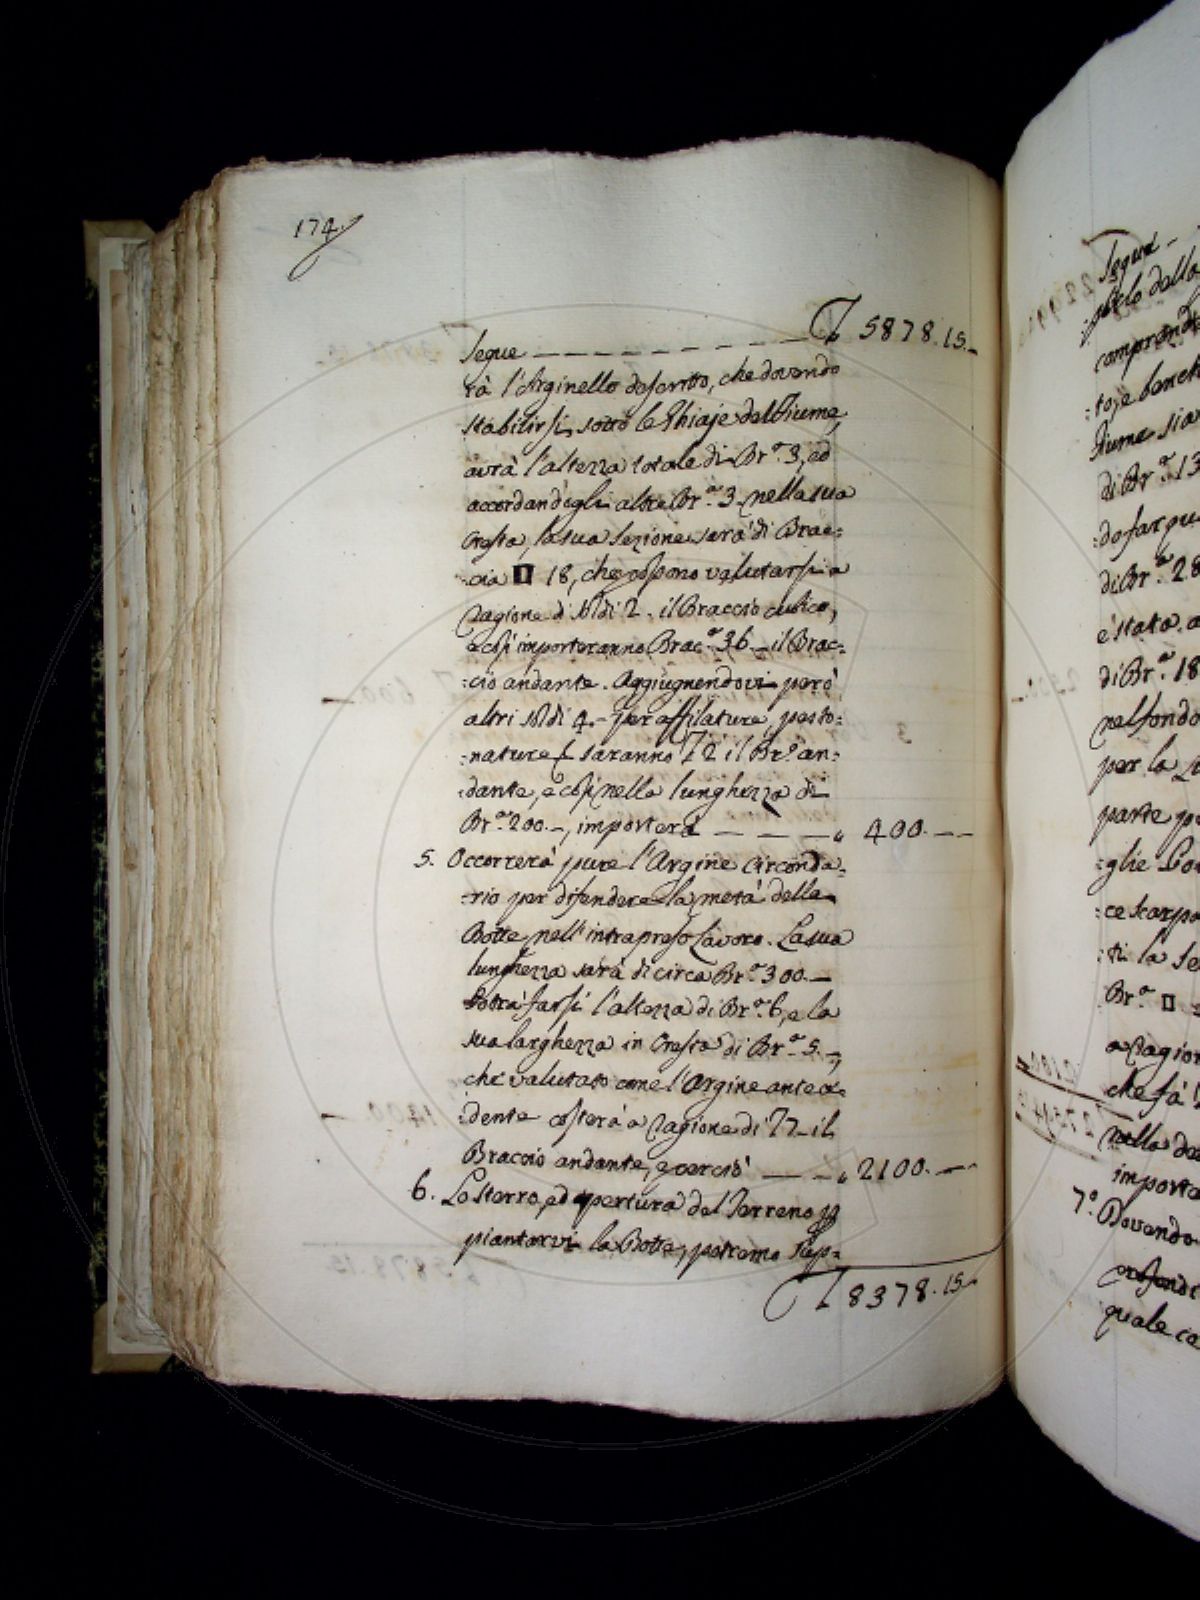 174.
Segue — — — — — — — — £ 5878.15.—
rà l'Arginello descritto, che dovendo
stabilirsi sotto le Ghiaje del Fiume,
avrà l'altezza totale di Br.ᵃ 3, ed
accordandogli altre Br.ᵃ 3. nella sua
Cresta, la sua sezione sarà di Brac:
:cia □ 18, che possono valutarsi a
ragione di soldi 2. il Braccio cubico,
e così importeranno Brac.ᵃ 36 — il Brac:
:cio andante. Aggiugnendovi però
altri soldi 4.— per affilature, pesto:
:nature saranno £ 2 il Br.º an:
:dante, e così nella lunghezza di
Br.ᵃ 200.—, importerà — — — — „ 400.— —
5. Occorrerà pure l'Argine circonda:
:rio per difendere la metà della
Botte nell'intrapreso Lavoro. La sua
lunghezza sarà di circa Br.ᵃ 300.—
Potrà farsi l'altezza di Br.ᵃ 6, e la
sua larghezza in Cresta di Br.ᵃ 5.—,
che valutato come l'Argine antece:
:dente costerà a ragione di £ 7.— il
Braccio andante, e perciò — — — „ 2100.— —
6. Lo sterro, ed apertura del Terreno p
piantarvi la Botte, potremo sup:
£ 8378.15.—
Segue —
:pelo dalla
comprend
:to, e banch
Fiume sia
di Br.ᵃ 13
:do far qu
di Br.ᵃ 28
è stata a
di Br.ᵃ 18
nel fondo
per la
parte p
:glie
:ce scarpa
:ti la se
Br.ᵃ □
a ragion
che fà
nella
importe
7.º Dovendo
quale ca